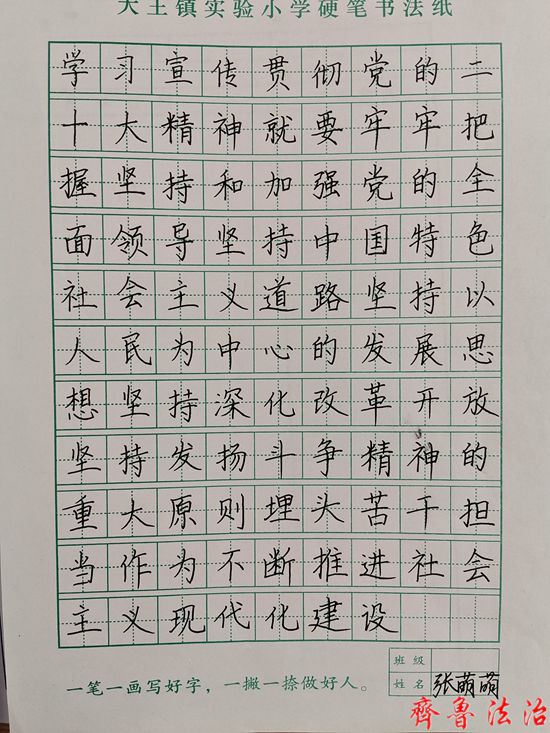 大王镇实验小学硬笔书法纸
学习宣传贯彻党的二
十大精神就要牢牢把
握坚持和加强党的全
面领导坚持中国特色
社会主义道路坚持以
人民为中心的发展思
想坚持深化改革开放
坚持发扬斗争精神的
重大原则埋头苦干担
当作为不断推进社会
主义现代化建设
班级
姓名 张萌萌
一笔一画写好字，一撇一捺做好人。
齊鲁法治